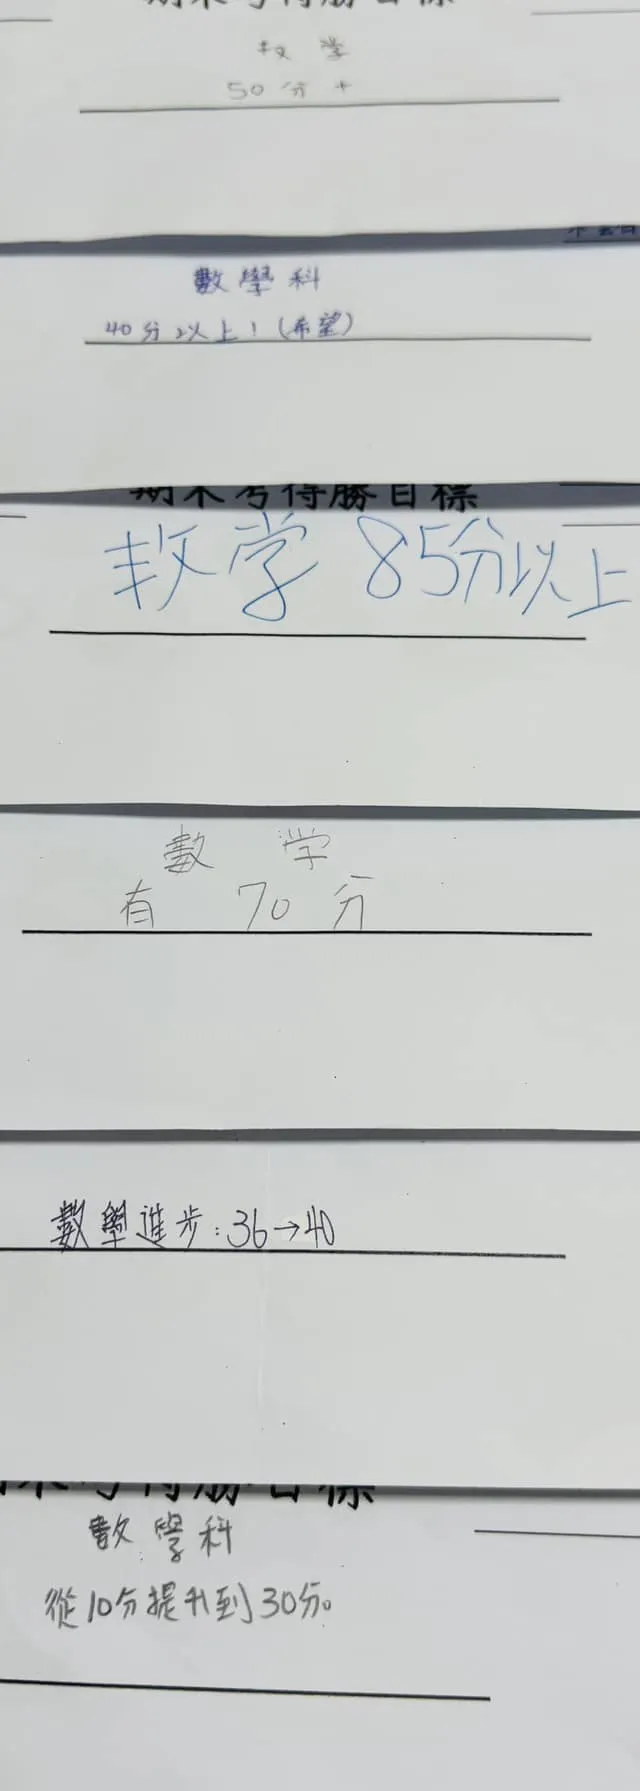 期末考得勝目標
数 学
50分+
數學科
40分以上！(希望)
期末考得勝目標
数学 85分以上
數 学
有 70分
數學進步：36→40
期末考得勝目標
數學科
從10分提升到30分。